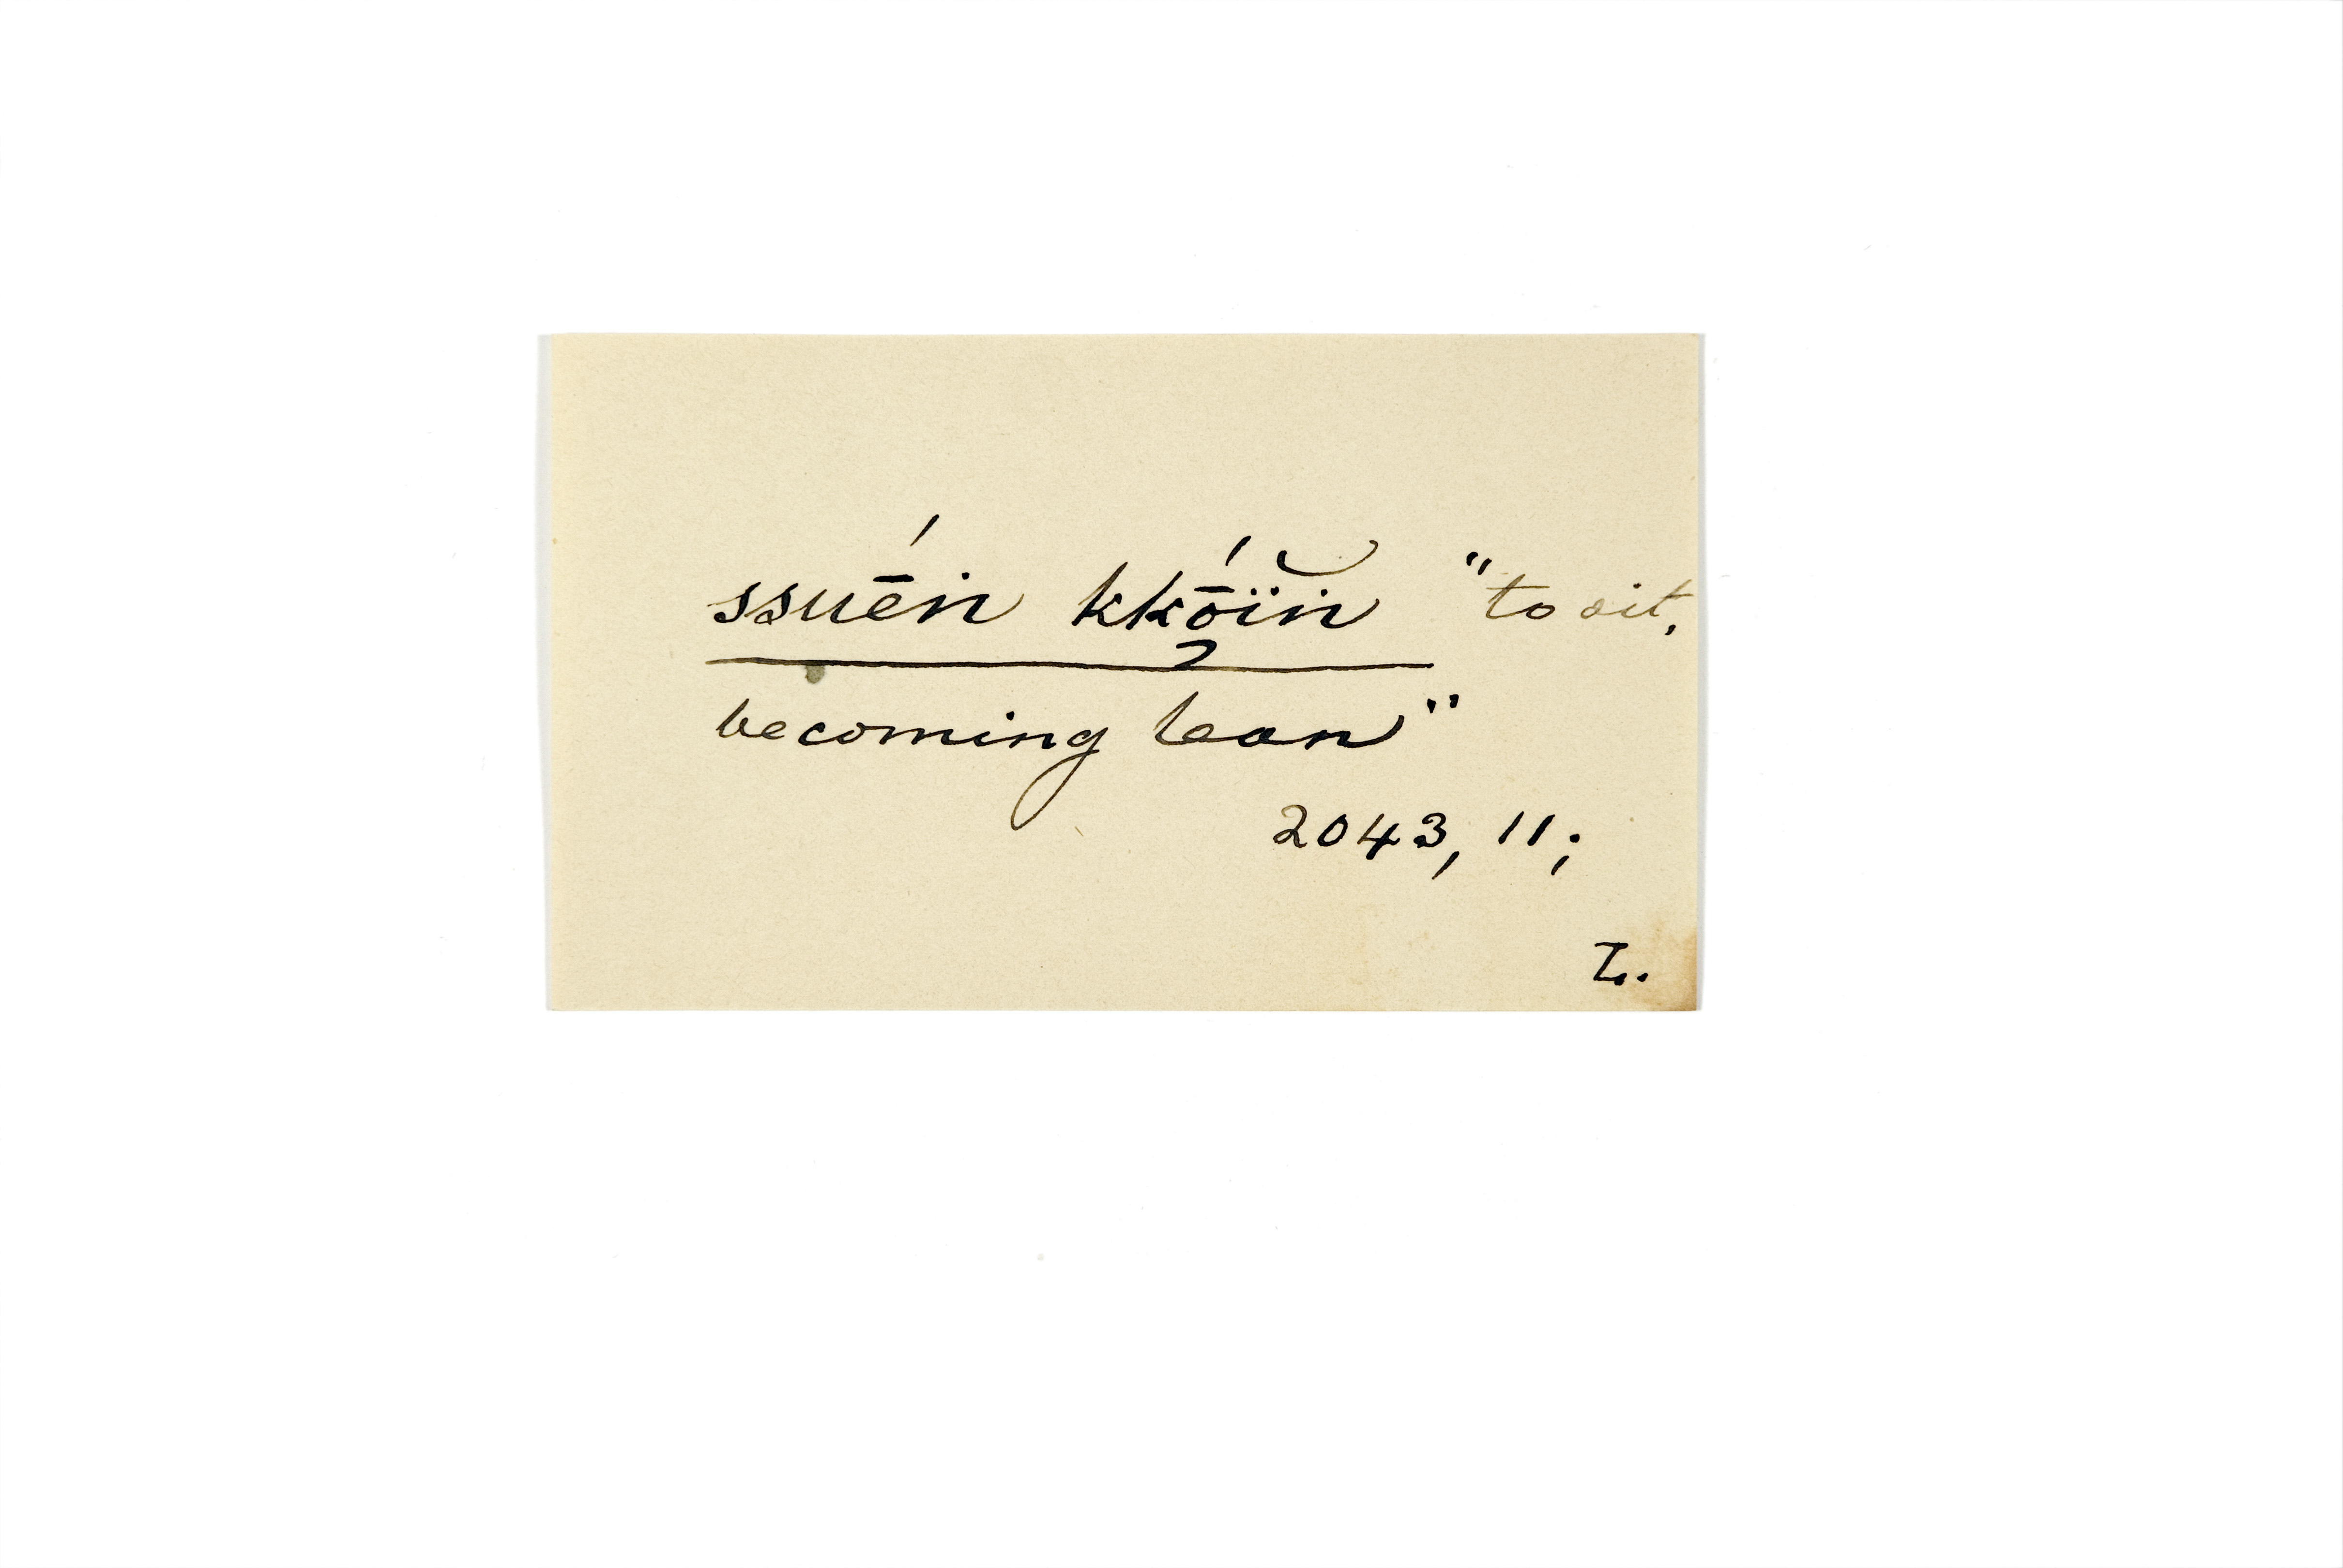 ssuḗṅ kkṓ̤ïṅ̆ "to sit,
becoming lean"
2043, 11;
L.